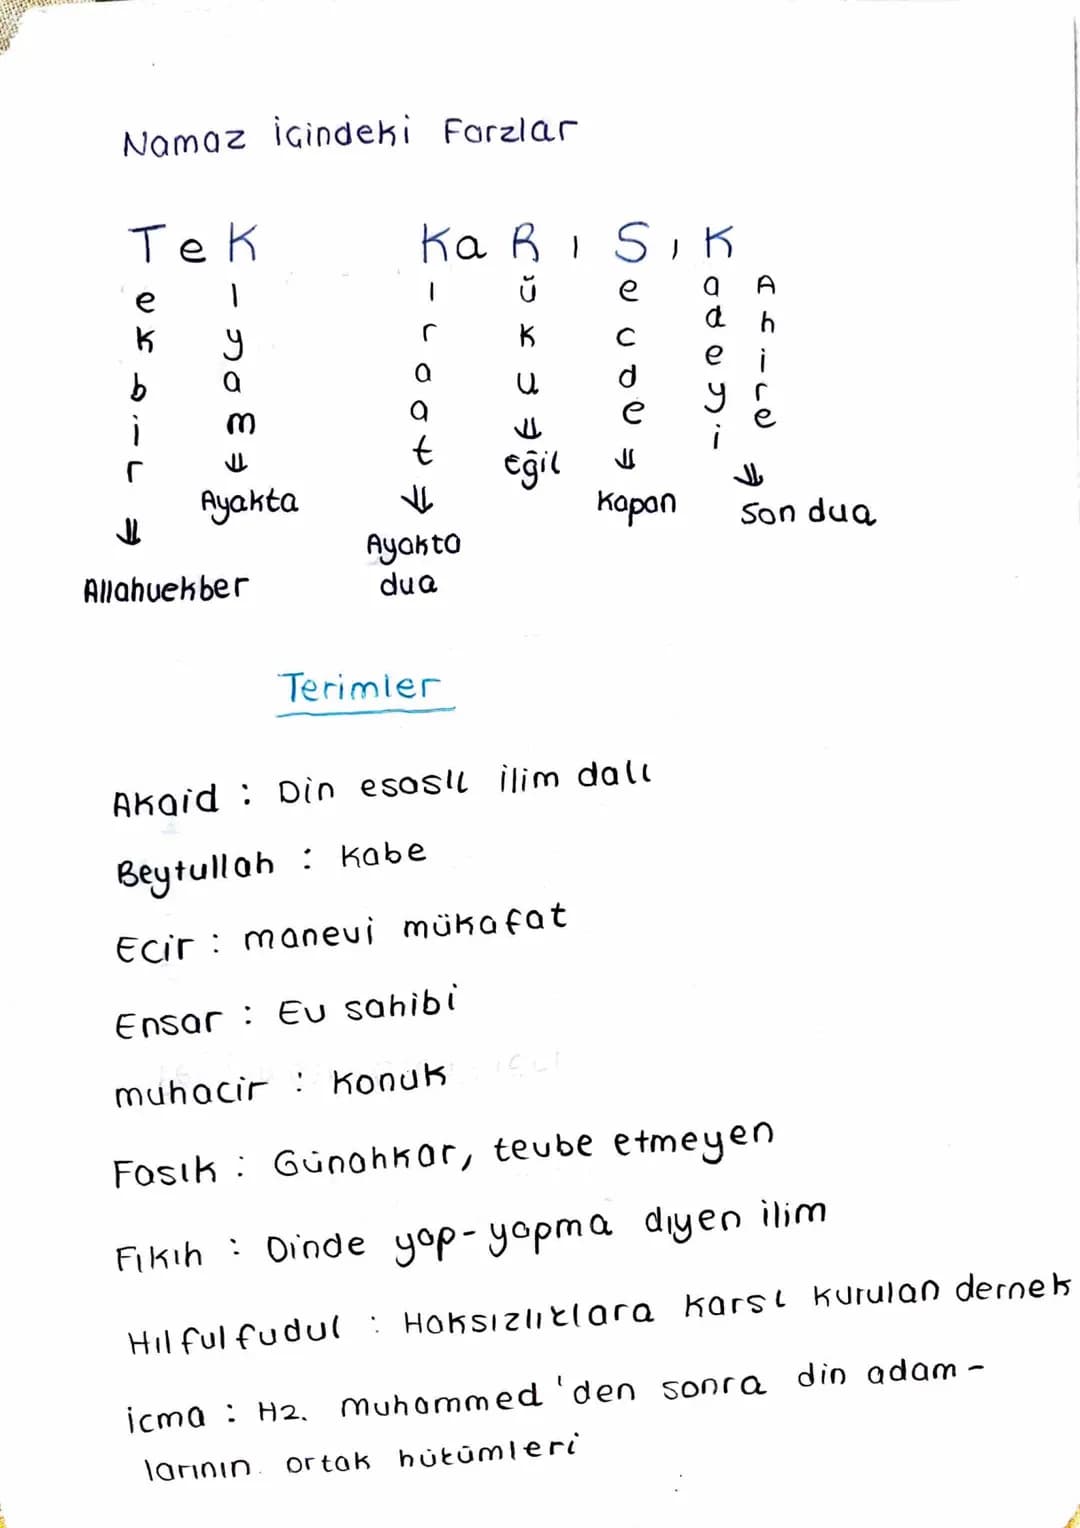 Namaz içindeki Farzlar
TeK KaRıSıK
Tekbir
⇓
Allahuekber
Kıyam
⇓
Ayakta
Kıraat
⇓
Ayakta
dua
Rüku
⇓
Eğil
Secde
⇓
Kapan
Kadeyi
Ahire
⇓
Son dua
Terimler
Akaid : Din esaslı ilim dalı
Beytullah : Kabe
Ecir : manevi mükafat
Ensar : Ev sahibi
muhacir : Konuk
Fasık : Günahkar, tevbe etmeyen
Fıkıh : Dinde yap-yapma dıyen ilim
Hılful fudul : Haksızlıklara karsı kurulan dernek
icma : Hz. muhammed'den sonra din adam-
larının ortak hükümleri